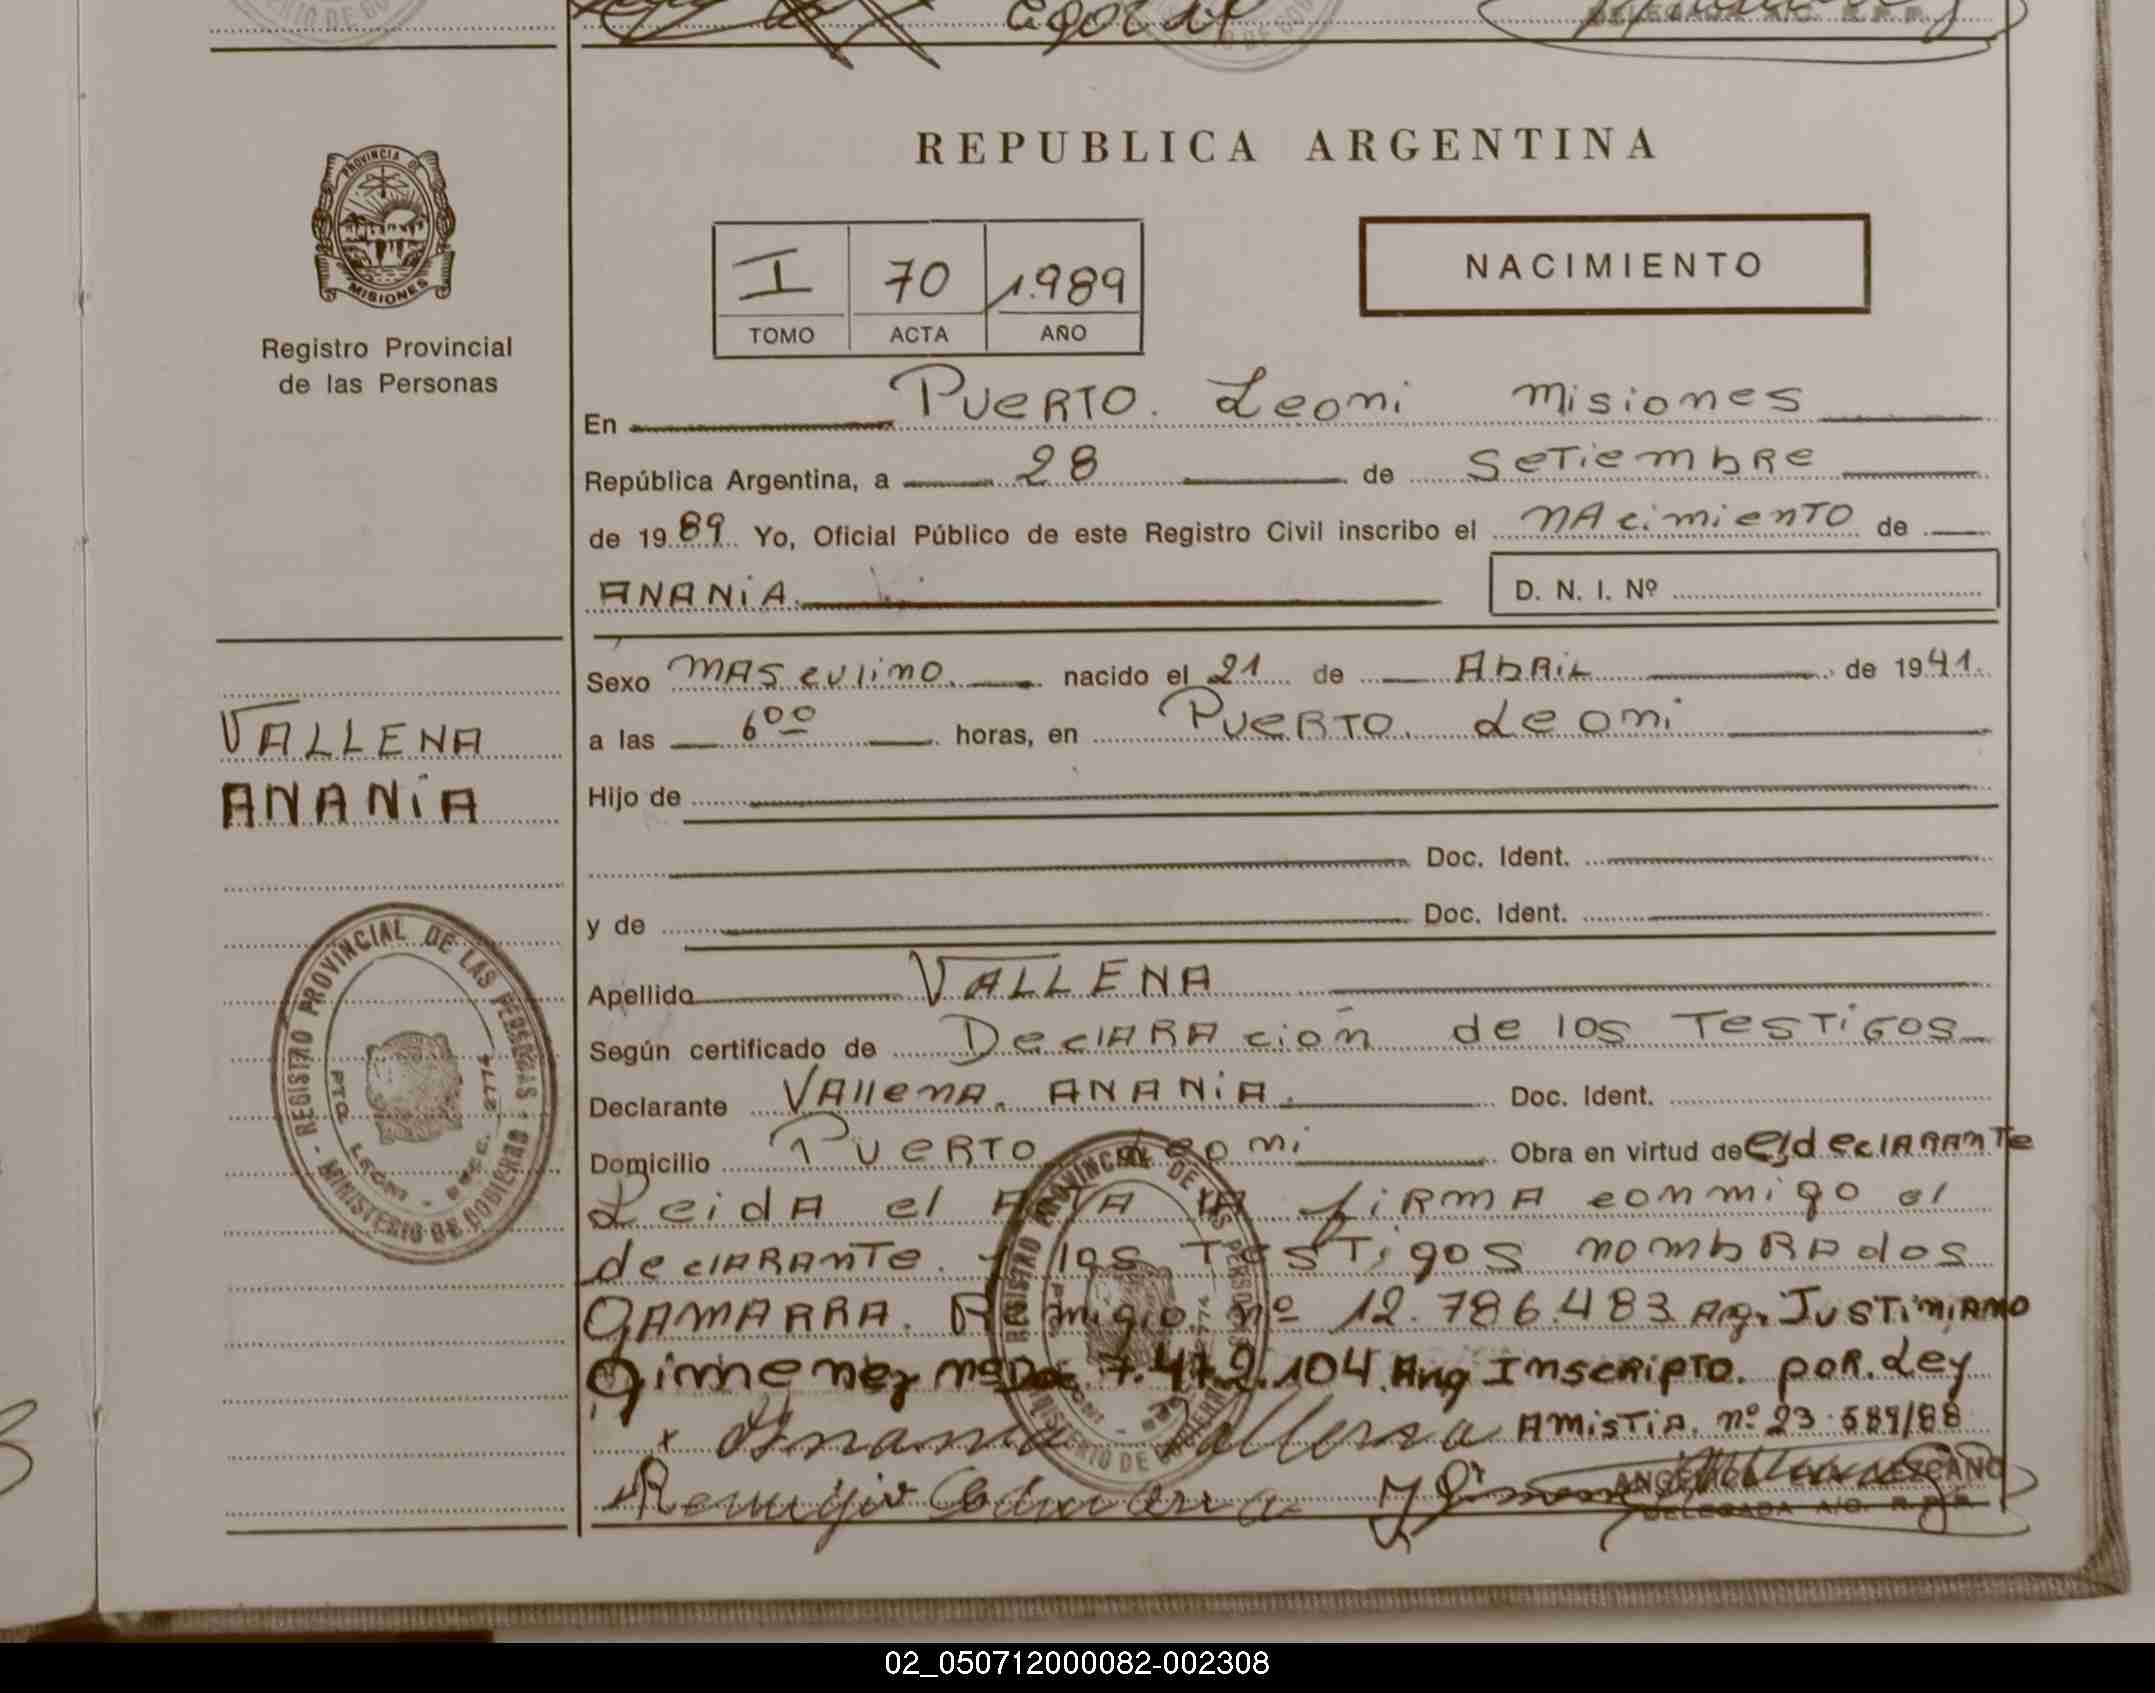 REPUBLICA ARGENTINA
PROVINCIA DE
MISIONES
Registro Provincial
de las Personas
I 70 1.989
TOMO ACTA AÑO
NACIMIENTO
En PUERTO. Leoni Misiones
República Argentina, a 28 de SETiembRe
de 1989 Yo, Oficial Público de este Registro Civil inscribo el NAcimienTO de
ANANiA. D. N. I. Nº
Sexo MASculino. nacido el 21 de AbRiL de 1941.
a las 6 00 horas, en PUERTO. Leoni
VALLENA
ANANiA
Hijo de
Doc. Ident.
y de Doc. Ident.
Apellido VALLENA
Según certificado de DeclARAción de los TesTiGOS
Declarante VAllenA. ANANiA. Doc. Ident.
Domicilio PUERTO Leoni Obra en virtud de el declARAnTe
LeidA el ACTA LA fiRMA conmigo el
declARAnTe. y los TesTigos nombRAdos
GAMARRA. Remigio nº 12.786.483 Ag. JUSTiniANO
Gimenez nº Doc. 7.472.104 Arg InscRipTO. poR. Ley
x Anania Vallena AMisTiA. nº 23.
Remigio Gamarra J Gimenez
DELEGADA A/C. R.P.P.
REGISTRO PROVINCIAL DE LAS PERSONAS
MINISTERIO DE GOBIERNO
PTO LEONI
02_050712000082-002308